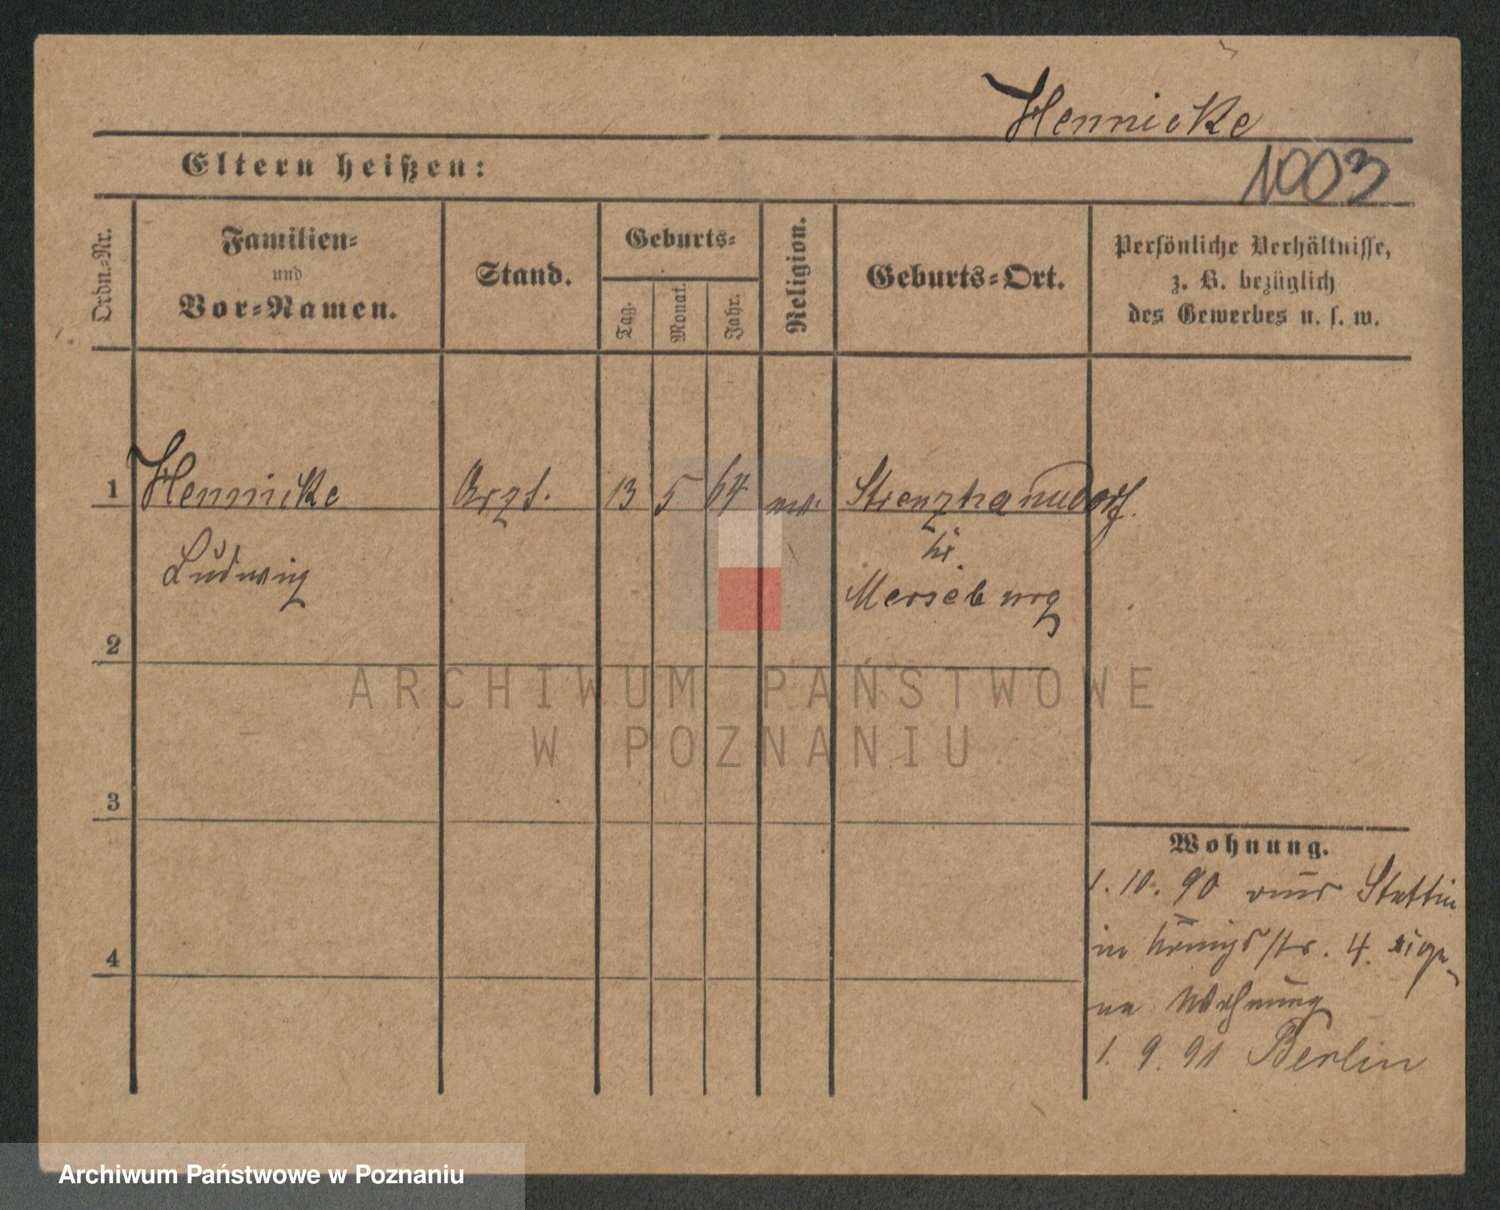 Hennicke
Eltern heißen:
1003
Ordn.-Nr.
Familien-
und
Vor-Namen.
Stand.
Geburts-
Tag.
Monat.
Jahr.
Religion.
Geburts-Ort.
Persönliche Verhältnisse,
z. B. bezüglich
des Gewerbes u. s. w.
1 Hennicke Arzt. 13 5 64
Ludwig
Kr.
Merseburg
2
ARCHIWUM PAŃSTWOWE
W POZNANIU
3
Wohnung.
1. 10. 90 aus Stettin
in Königsstr. 4. eige-
ne Wohnung
4
1. 9. 91 Berlin
Archiwum Państwowe w Poznaniu